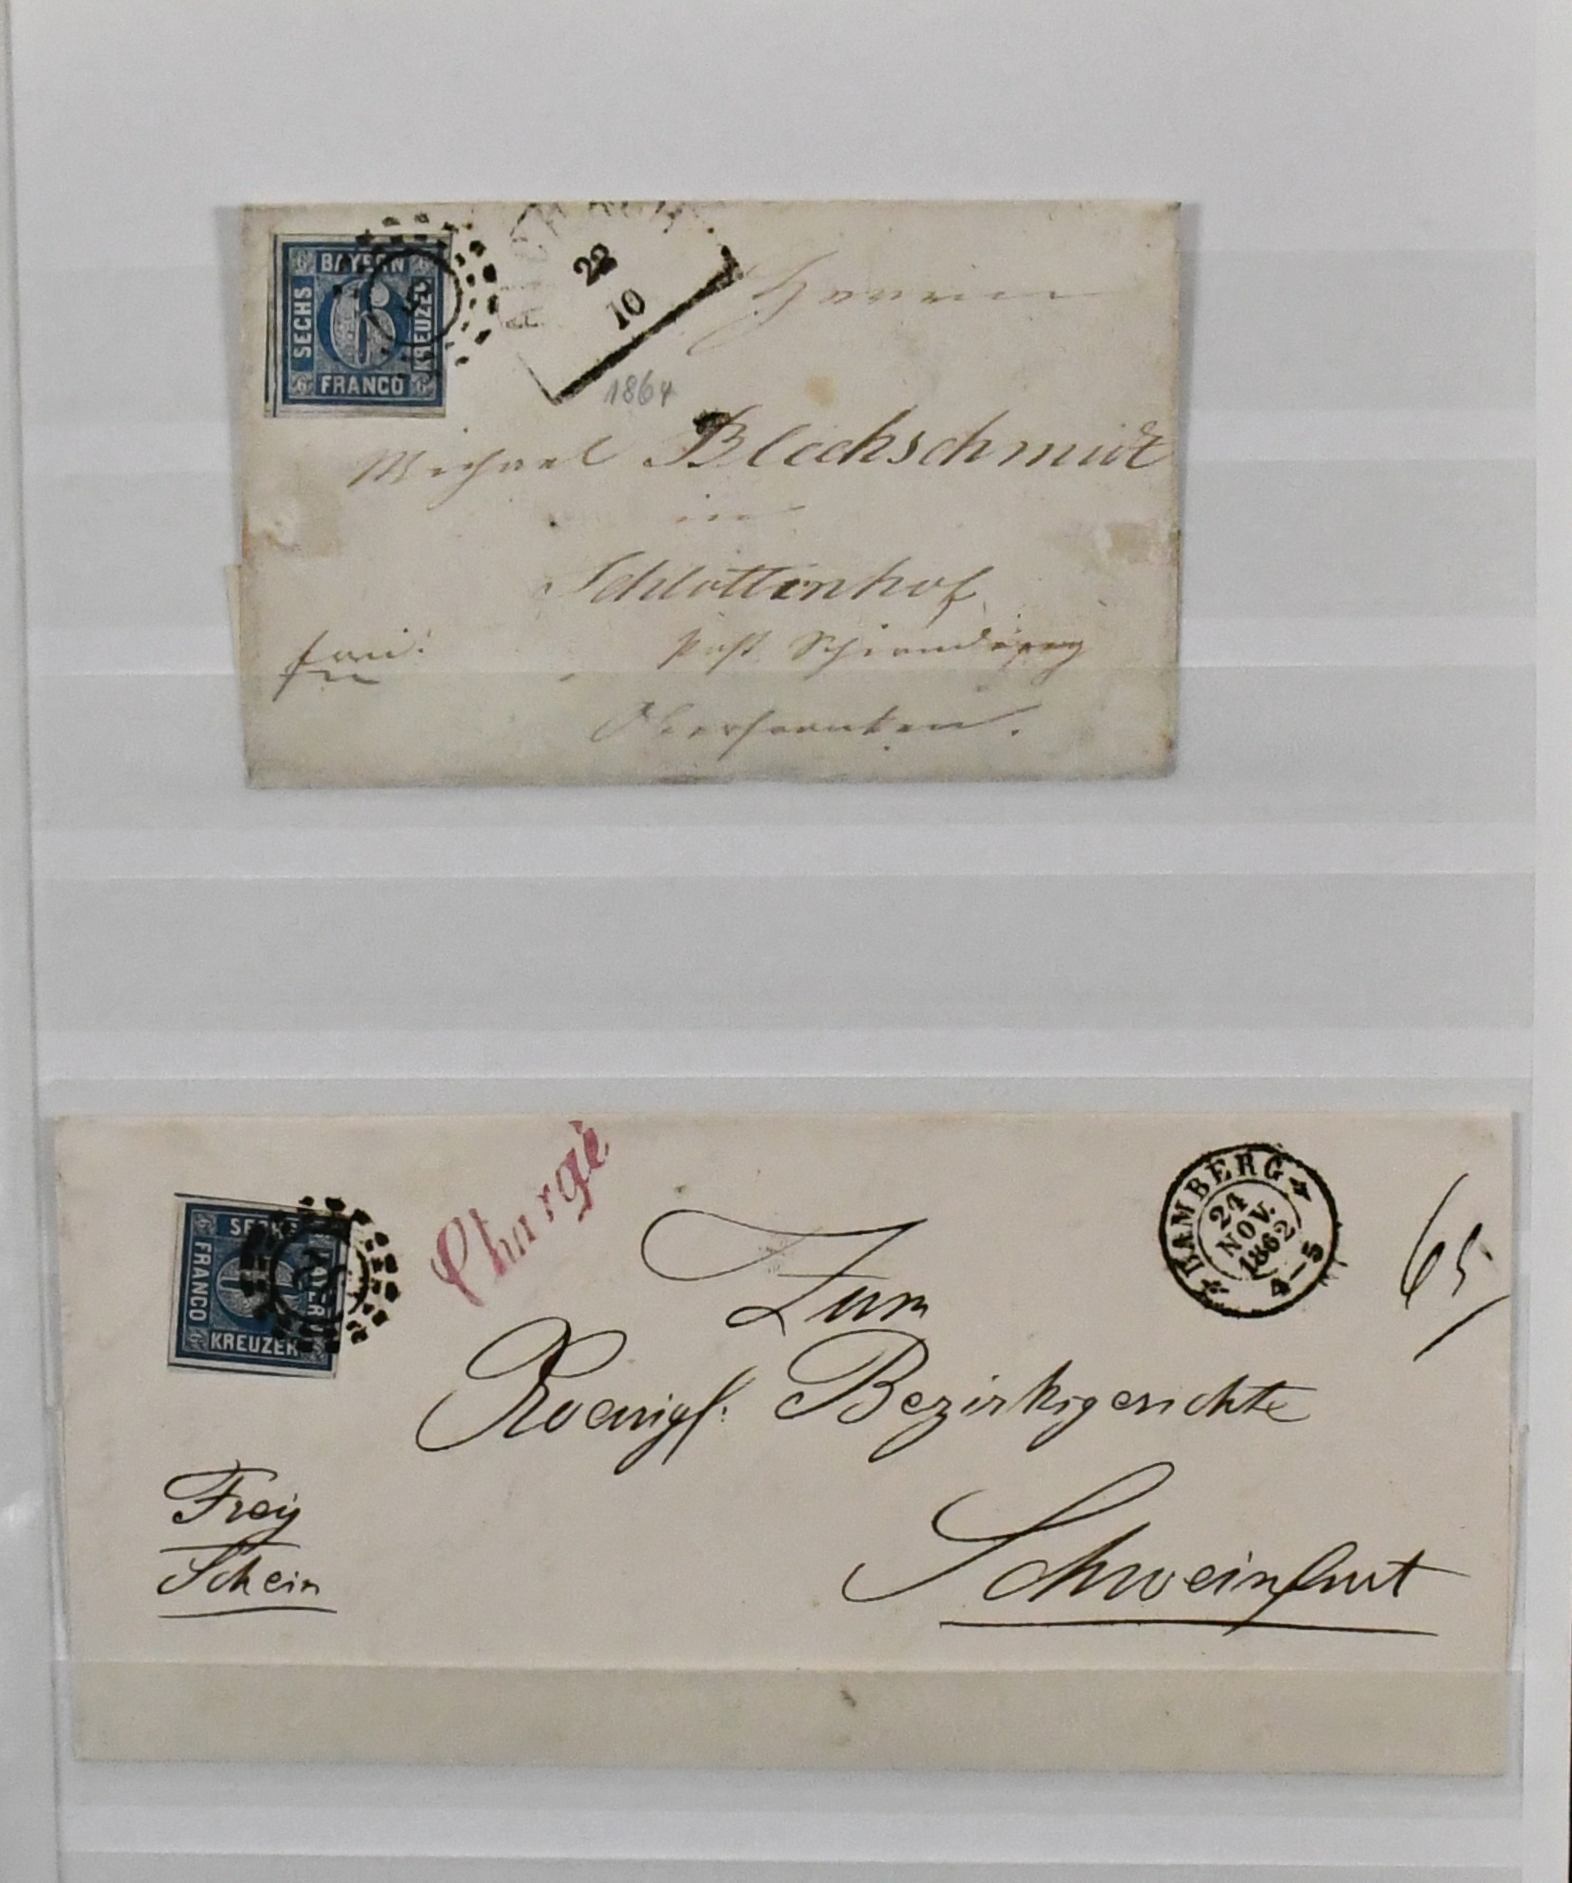 BAYERN
SECHS
KREUZER
FRANCO
6 6 6 6
6
22
10
1864
Herrn
Michael Blechschmidt
in
Schlottenhof
frei.
Post Schirnding
Oberfranken.
SECHS
FRANCO
BAYERN
KREUZER
Chargé
BAMBERG
24
NOV.
1862
4-5
Zum
Koenigl: Bezirksgerichte
Frey
Schein
Schweinfurt